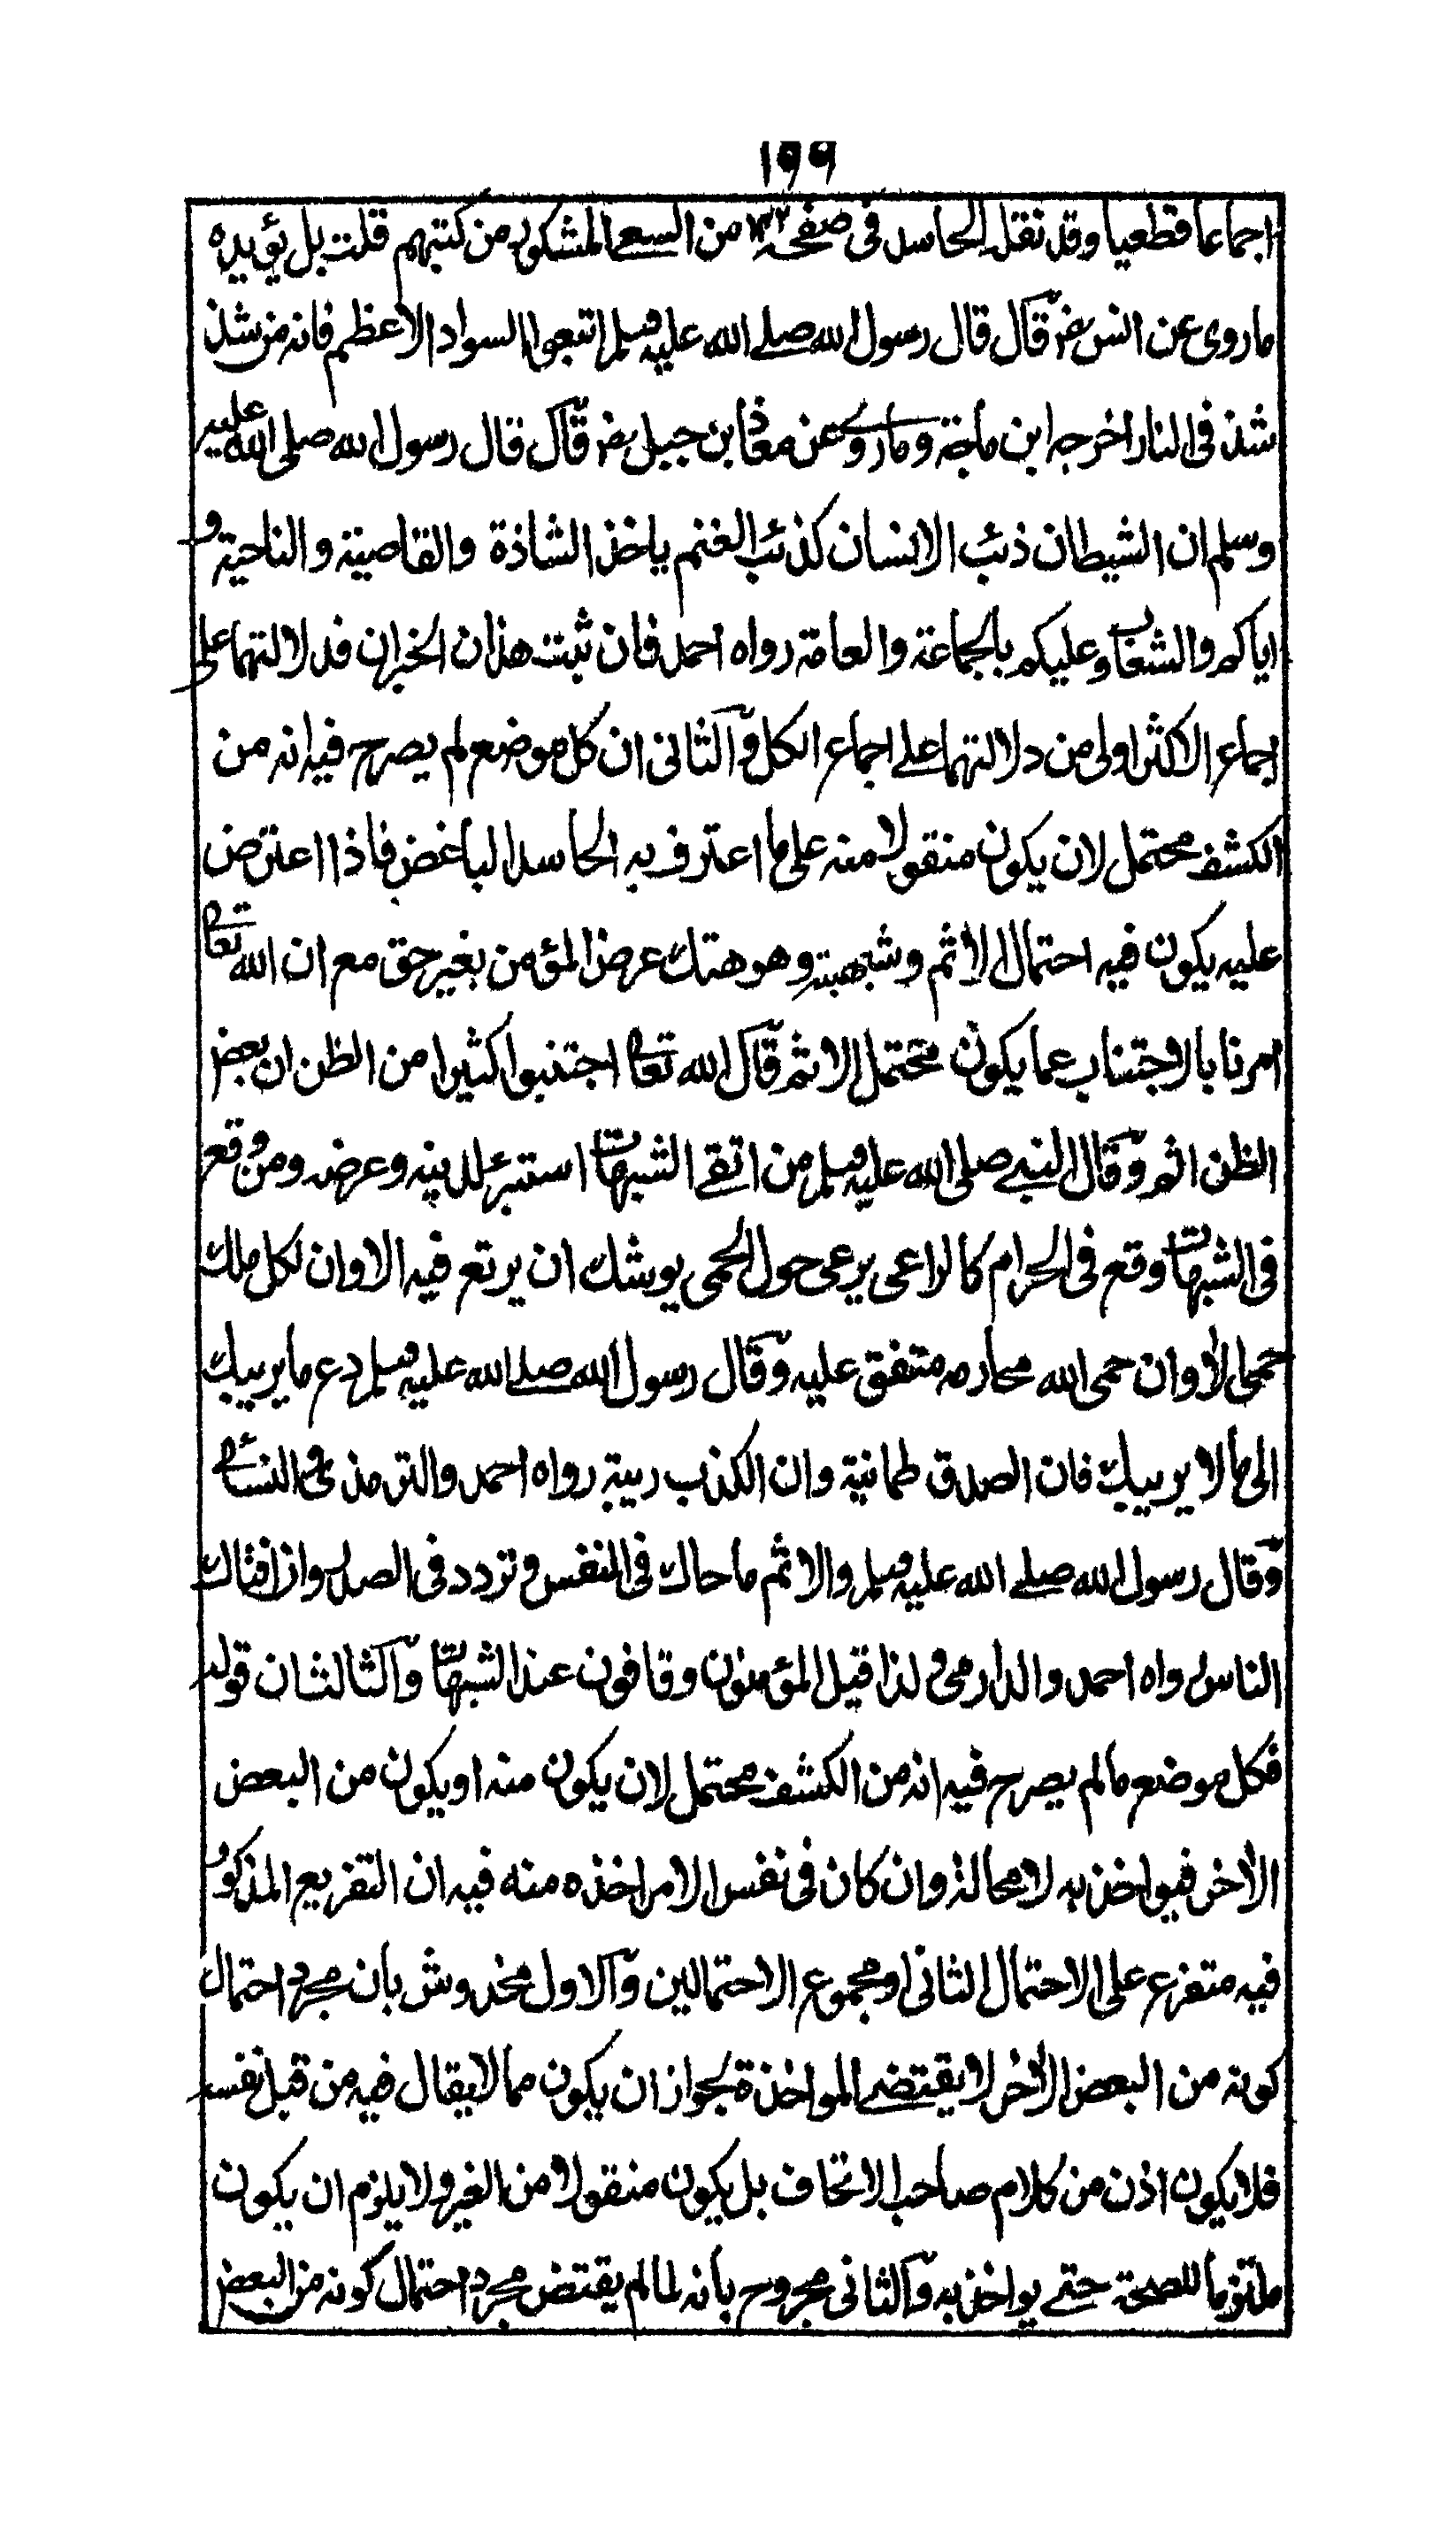 ١٩٩
اجماعا قطعيا وقد نقله الحاسد فى صفحه من السعى المشكور من كتبهم قلت بل يؤيده
ما روى عن انس رض قال قال رسول الله صلى الله عليه وسلم اتبعوا السواد الاعظم فانه من شذ
شذ فى النار اخرجه ابن ماجة وما روى عن معاذ بن جبل رض قال قال رسول الله صلى الله عليه
وسلم ان الشيطان ذئب الانسان كذئب الغنم ياخذ الشاذة والقاصية والناحية و
اياكم والشعاب وعليكم بالجماعة والعامة رواه احمد فان ثبت هذان الخبران فدلالتهما على
اجماع الاكثر اولى من دلالتهما على اجماع الكل والثانى ان كل موضع لم يصرح فيه انه من
الكشف محتمل لان يكون منقولا منه على ما اعترف به الحاسد الباغض فاذا اعترض
عليه يكون فيه احتمال الاثم وشبهته وهو هتك عرض المؤمن بغير حق مع ان الله تعالى
امرنا بالاجتناب عما يكون محتمل الاثم قال الله تعالى اجتنبوا كثيرا من الظن ان بعض
الظن اثم وقال النبى صلى الله عليه وسلم من اتقى الشبهات استبرئ لدينه وعرضه ومن وقع
فى الشبهات وقع فى الحرام كالراعى يرعى حول الحمى يوشك ان يرتع فيه الا وان لكل ملك
حمى الا وان حمى الله محارمه متفق عليه وقال رسول الله صلى الله عليه وسلم دع ما يريبك
الى ما لا يريبك فان الصدق طمانية وان الكذب ريبة رواه احمد والترمذى والنسائى
وقال رسول الله صلى الله عليه وسلم والاثم ما حاك فى النفس وتردد فى الصدر وان افتاك
الناس رواه احمد والدارمى ولذا قيل المؤمنون وقافون عند الشبهات والثالث ان قوله
فكل موضع ما لم يصرح فيه انه من الكشف محتمل لان يكون منه او يكون من البعض
الأخر فيواخذ به لا محالة وان كان فى نفس الامر اخذه منه فيه ان التفريع المذكور
فيه متفرع على الاحتمال الثانى او مجموع الاحتمالين والاول مخدوش بان مجرد احتمال
كونه من البعض الأخر لا يقتضى المواخذة لجواز ان يكون مما لا يقال فيه من قبل نفسه
فلا يكون اذن من كلام صاحب الاتحاف بل يكون منقولا من الغير ولا يلزم ان يكون
ملتزما للصحة حتى يواخذ به والثانى مجروح بأنه لما لم يقتض مجرد احتمال كونه من البعض